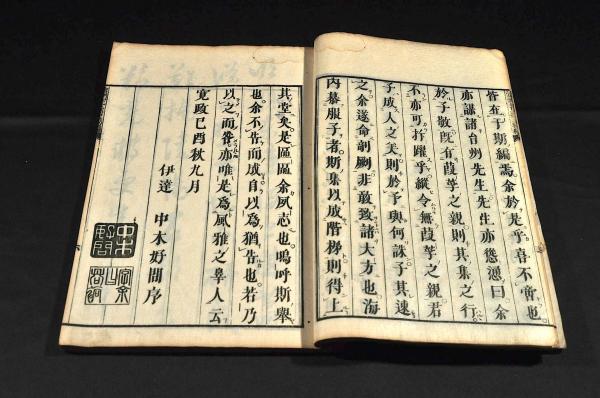 皆在于斯編焉余於是乎喜不啻也
亦謀諸台州先生先生亦慫慂曰余
於子敬既有葭莩之親則其集之行
不亦可抃躍乎縱令無葭莩之親君
子成人之美則於予與何誅子其速
之余遂命剞劂非敢致諸大方也海
内慕服子者斯集以成階梯則得上
其堂矣是區區余夙志也嗚呼斯舉
也余不告而成自以爲猶告也若乃
以之而咎亦唯是爲風雅之辠人云
寛政己酉秋九月
伊達 中木好問序